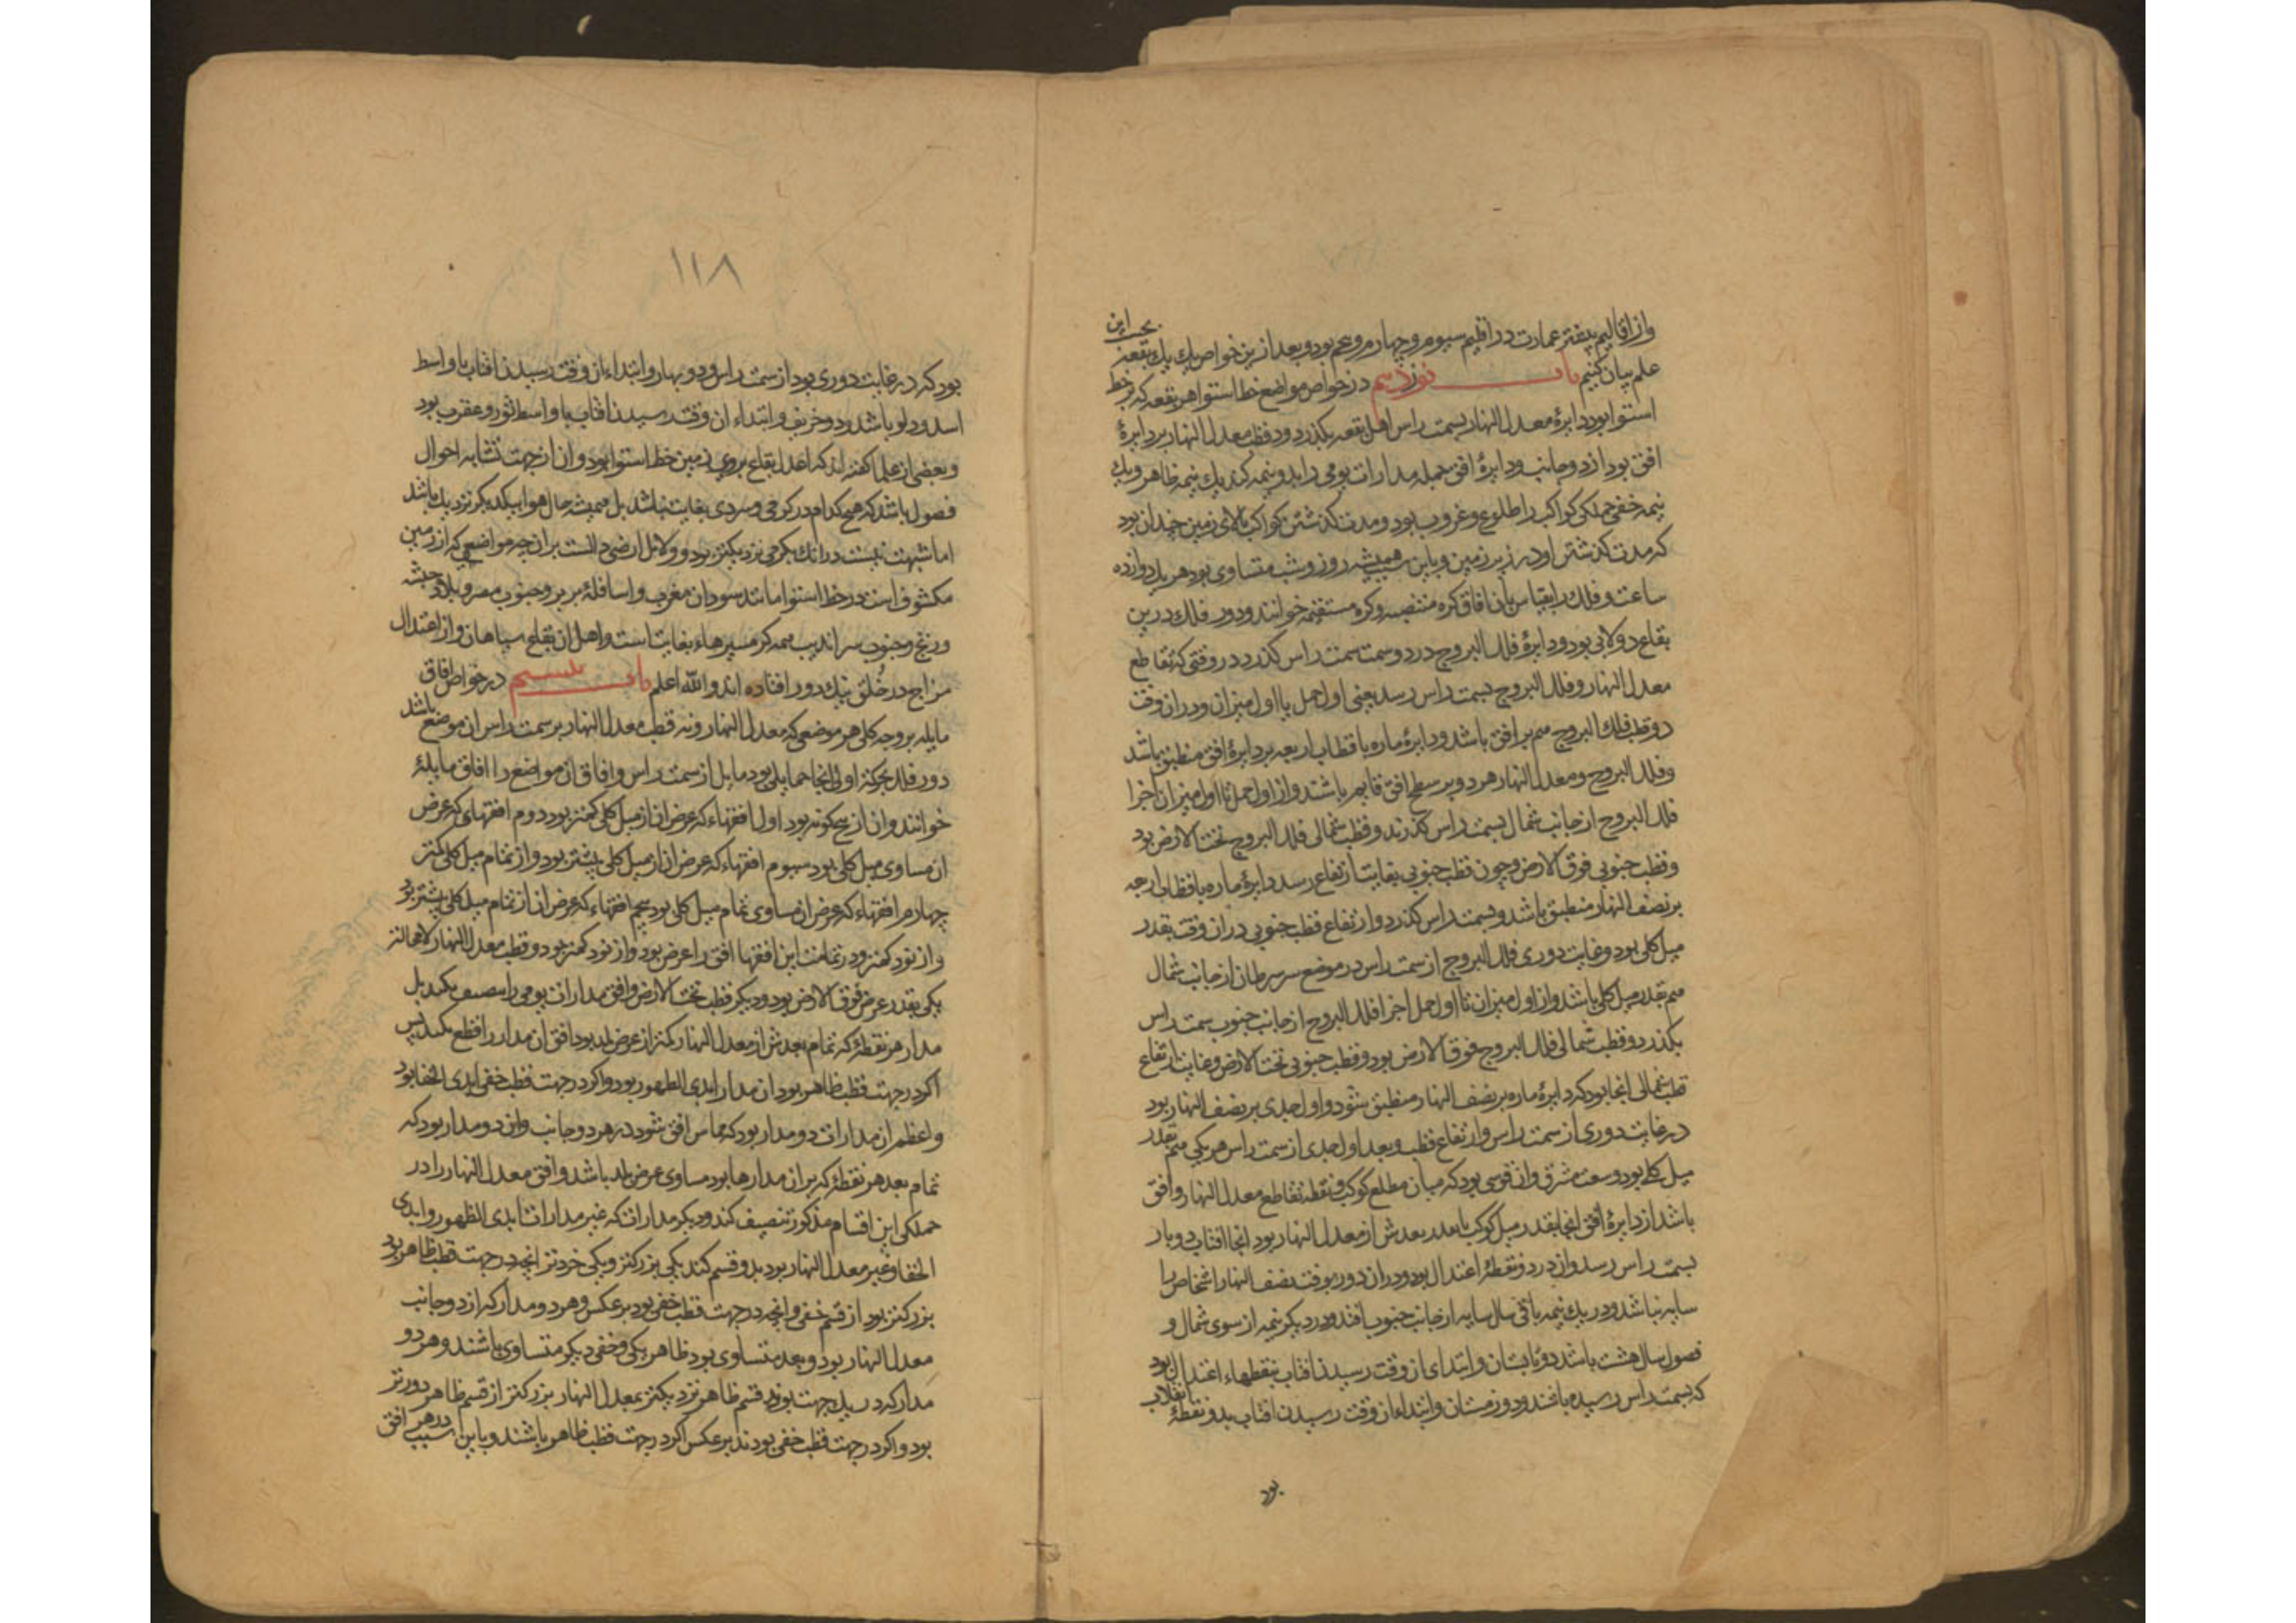 واز اقالیم بیشتر عمارت در اقلیم سیوم و چهارم و پنجم بود و بعد ازین خواص یک یک بقعه بحسب این
علم بیان کنیم باب نوزدهم در خواص مواضع خط استوا هر بقعه که بر خط
استوا بود دایرهٔ معدل النهار بسمت راس اهل بقعه بگذرد و دو قطب معدل النهار بر دایرهٔ
افق بود از دو جانب و دایرهٔ افق جمله مدارات یومی را بدو نیمه کند یک نیمه ظاهر و یک
نیمه خفی جملگی کواکب را طلوع و غروب بود و مدت گذشتن کواکب بالای زمین چندان بود
که مدت گذشتن او در زیر زمین و باین همیشه روز و شب متساوی بود هر یک دوازده
ساعت و فلک را بقیاس بان افاق کره منتصبه و کره مستقیمه خوانند و دور فلک درین
بقاع دولابی بود و دایرهٔ فلک البروج در دو سمت سمت راس گذرد در وقتی که تقاطع
معدل النهار و فلک البروج بسمت راس رسد یعنی اول حمل یا اول میزان و دران وقت
دو قطب فلک البروج هم بر افق باشد و دایرهٔ ماره باقطاب اربعه بر دایرهٔ افق منطبق باشد
و فلک البروج و معدل النهار هر دو بر سطح افق قایم باشند و از اول حمل تا اول میزان اجزا
فلک البروج از جانب شمال بسمت راس گذرند و قطب شمالی فلک البروج تحت الارض بود
و قطب جنوبی فوق الارض و چون قطب جنوبی بغایت ارتفاع رسد دایرهٔ ماره باقطاب اربعه
بر نصف النهار منطبق باشد و بسمت راس گذرد و ارتفاع قطب جنوبی دران وقت بقدر
میل کلی بود و غایت دوری فلک البروج از سمت راس در موضع سر سرطان از جانب شمال
هم بقدر میل کلی باشد و از اول میزان تا اول حمل اجزا فلک البروج از جانب جنوب سمت راس
بگذرد و قطب شمالی فلک البروج فوق الارض بود و قطب جنوبی تحت الارض و غایت ارتفاع
قطب شمالی انجا بود که دایرهٔ ماره بر نصف النهار منطبق شود و اول جدی بر نصف النهار بود
در غایت دوری از سمت راس و ارتفاع قطب و بعد اول جدی از سمت راس هر یکی هم بقدر
میل کلی بود و سعت مشرق و ان قوسی بود که میان مطلع کوکب و نقطه تقاطع معدل النهار و افق
باشد از دایرهٔ افق انجا بقدر میل کوکب یا بقدر بعدش از معدل النهار بود انجا افتاب دو بار
بسمت راس رسد و ان در دو نقطهٔ اعتدال بود و دران دو روز بوقت نصف النهار اشخاص را
سایه نباشد و در یک نیمه باقی سال سایه از جانب جنوب افتد و در دیگر نیمه از سوی شمال و
فصول سال هشت باشد دو تابستان و ابتدای از وقت رسیدن افتاب بنقطهاء اعتدال بود
که بسمت راس رسیده باشد و دو زمستان و ابتداء از وقت رسیدن افتاب بدو نقطهٔ انقلاب
بود
١١٨
بود که در غایت دوری بود از سمت راس و دو بهار و ابتداء ان وقت رسیدن افتاب با واسط
اسد و دلو باشد و دو خریف و ابتداء ان وقت رسیدن افتاب با واسط ثور و عقرب بود
و بعضی از علما گفته اند که اعدل بقاع بر روی زمین خط استوا بود و ان از جهت تشابه احوال
فصول باشد که هیچکدام در گرمی و سردی بغایت نباشد بل همیشه حال هوا بیکدیگر نزدیک باشد
اما شبهت نیست درانک بگرمی نزدیکتر بود و دلایل ارضی دالست بران چه مواضعی که از زمین
مکشوف است در خط استوا مانند سودان مغرب و اسافلهٔ بربر و جنوب مصر و بلاد حبشه
و زنج و جنوب سراندیب همه گرمسیرهاء بغایت است و اهل ان بقاع سیاهان و از اعتدال
مزاج در خلق نیک دور افتاده اند والله اعلم باب بیستم در خواص افاق
مایله بر وجه کلی هر موضعی که معدل النهار و نه قطب معدل النهار بر سمت راس ان موضع باشد
دور فلک بحرکة اولی انجا حمایلی بود مایل از سمت راس و افاق ان مواضع را افاق مایلهٔ
خوانند و ان پنج گونه بود اول افقهاء که عرض ان از میل کلی کمتر بود دوم افقهای که عرض
ان مساوی میل کلی بود سیوم افقهاء که عرض ان از میل کلی بیشتر بود و از تمام میل کلی کمتر
چهارم افقهاء که عرض ان مساوی تمام میل کلی بود پنجم افقهاء که عرض ان از تمام میل کلی بیشتر بود
و از نود کمتر و در تمامت این افقها افق را عرض بود و از نود کمتر بود و قطب معدل النهار لامحاله
یکی بقدر عرض فوق الارض بود و دیگر قطب تحت الارض و افق مدارات یومی را بنصف نکند بل
مدار هر نقطهٔ که تمام بعدش از معدل النهار کمتر از عرض بلد بود افق ان مدار را قطع نکند پس
اگر در جهت قطب ظاهر بود ان مدار ابدی الظهور بود و اگر در جهت قطب خفی ابدی الخفا بود
و اعظم ان مدارات دو مدار بود که مماس افق شود در هر دو جانب و این دو مدار بود که
تمام بعد هر نقطهٔ که بر ان مدارها بود مساوی عرض بلد باشد و افق معدل النهار را در
جملکی این اقسام مذکور تنصیف کند و دیگر مدارات که غیر مدارات ابدی الظهور و ابدی
الخفا و غیر معدل النهار بود بدو قسم کند یکی بزرگتر و یکی خردتر انچه در جهت قطب ظاهر بود
بزرگتر بود از قسم خفی و انچه در جهت قطب خفی بود بر عکس و هر دو مدار که از دو جانب
معدل النهار بود و بعد متساوی بود ظاهر یکی و خفی دیگر متساوی باشند و هر دو
مدار که در یک جهت بوند قسم ظاهر نزدیکتر بمعدل النهار بزرگتر از قسم ظاهر دورتر
بود و اگر در جهت قطب خفی بودند بر عکس اگر در جهت قطب ظاهر باشند و باین سبب در هر افق